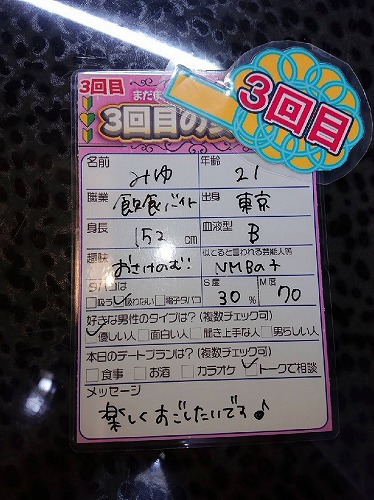 3回目
まだま
3回目の
3回目
名前 みゆ 年齢 21
職業 飲食バイト 出身 東京
身長 152cm 血液型 B
趣味 おさけのむ! 似てると言われる芸能人等 NMBの子
タバコは S度 M度
吸う 吸わない 電子タバコ 30% 70
好きな男性のタイプは?(複数チェック可)
優しい人 面白い人 聞き上手な人 男らしい人
本日のデートプランは?(複数チェック可)
食事 お酒 カラオケ トークで相談
メッセージ
楽しくすごしたいです♪